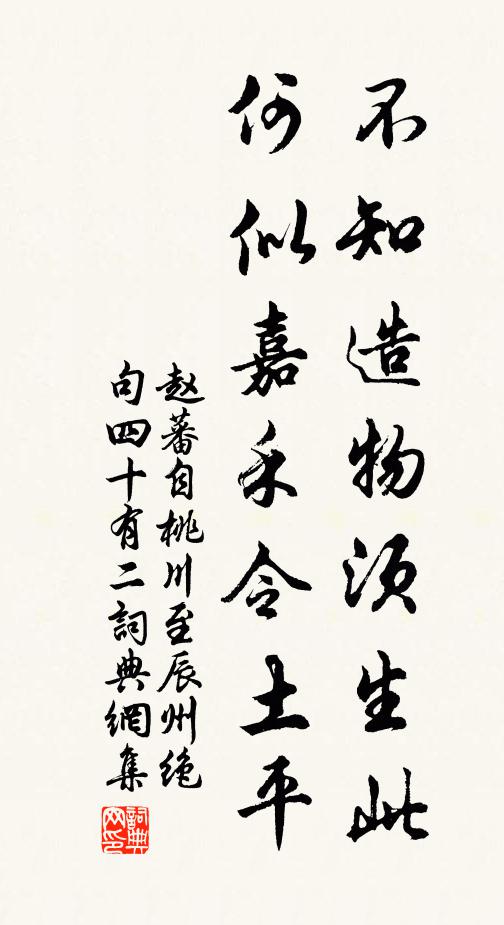 不知造物须生此
何似嘉禾令土平
赵蕃自桃川至辰州绝
句四十有二詞典網集
詞典
网印